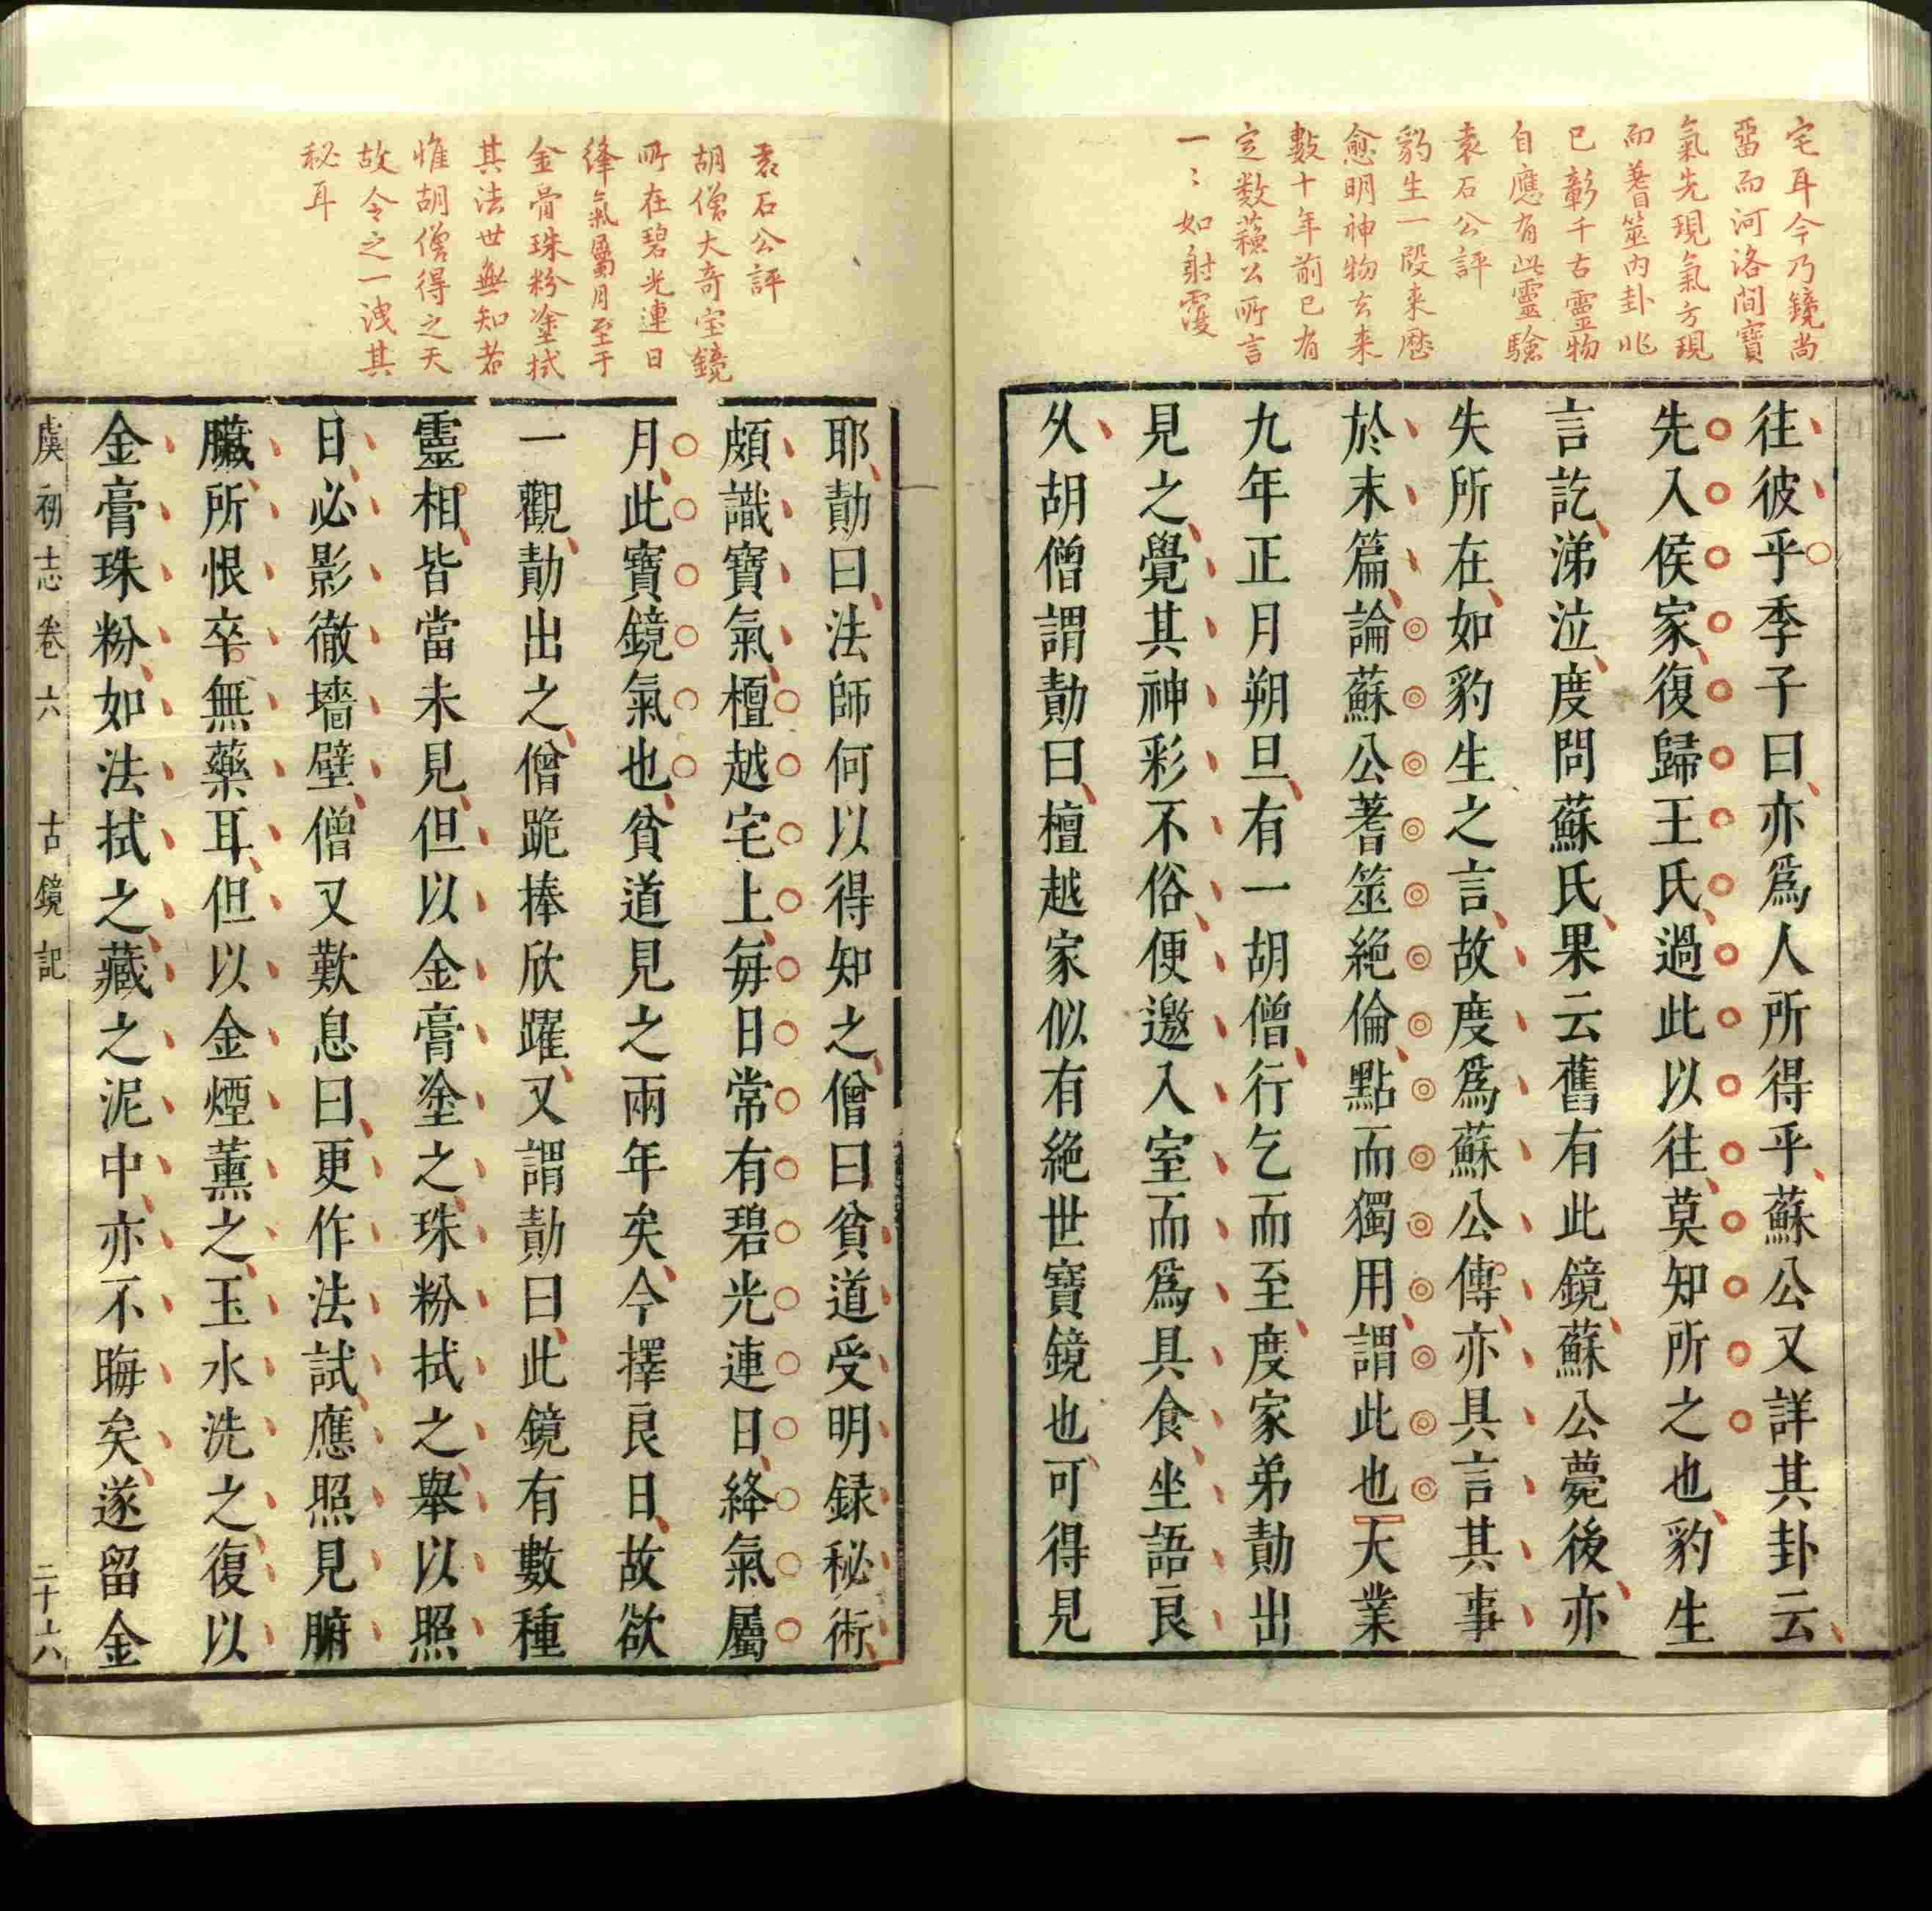 宅耳今乃鏡尚
畱而河洛間寶
氣先現氣方現
而蓍筮內卦兆
已彰千古靈物
自應有此靈驗
袁石公評
豹生一段来歴
愈明神物去来
數十年前已有
定数蘓公所言
一〻如射覆
往彼乎季子曰亦爲人所得乎蘇公又詳其卦云
先入侯家復歸王氏過此以往莫知所之也豹生
言訖涕泣度問蘇氏果云舊有此鏡蘇公薨後亦
失所在如豹生之言故度爲蘇公傳亦具言其事
於末篇論蘇公蓍筮絶倫點而獨用謂此也大業
九年正月朔旦有一胡僧行乞而至度家弟勣出
見之覺其神彩不俗便邀入室而爲具食坐語良
乆胡僧謂勣曰檀越家似有絶世寶鏡也可得見
袁石公評
胡僧大奇宝鏡
所在碧光連日
絳氣屬月至于
金膏珠粉塗拭
其法世無知者
惟胡僧得之天
故令之一洩其
秘耳
耶勣曰法師何以得知之僧曰貧道受明録秘術
頗識寶氣檀越宅上每日常有碧光連日絳氣屬
月此寶鏡氣也貧道見之兩年矣今擇良日故欲
一觀勣出之僧跪捧欣躍又謂勣曰此鏡有數種
靈相皆當未見但以金膏塗之珠粉拭之舉以照
日必影徹墻壁僧又歎息曰更作法試應照見腑
臟所恨卒無藥耳但以金煙薰之玉水洗之復以
金膏珠粉如法拭之藏之泥中亦不晦矣遂留金
虞初志卷六 古鏡記 二十六